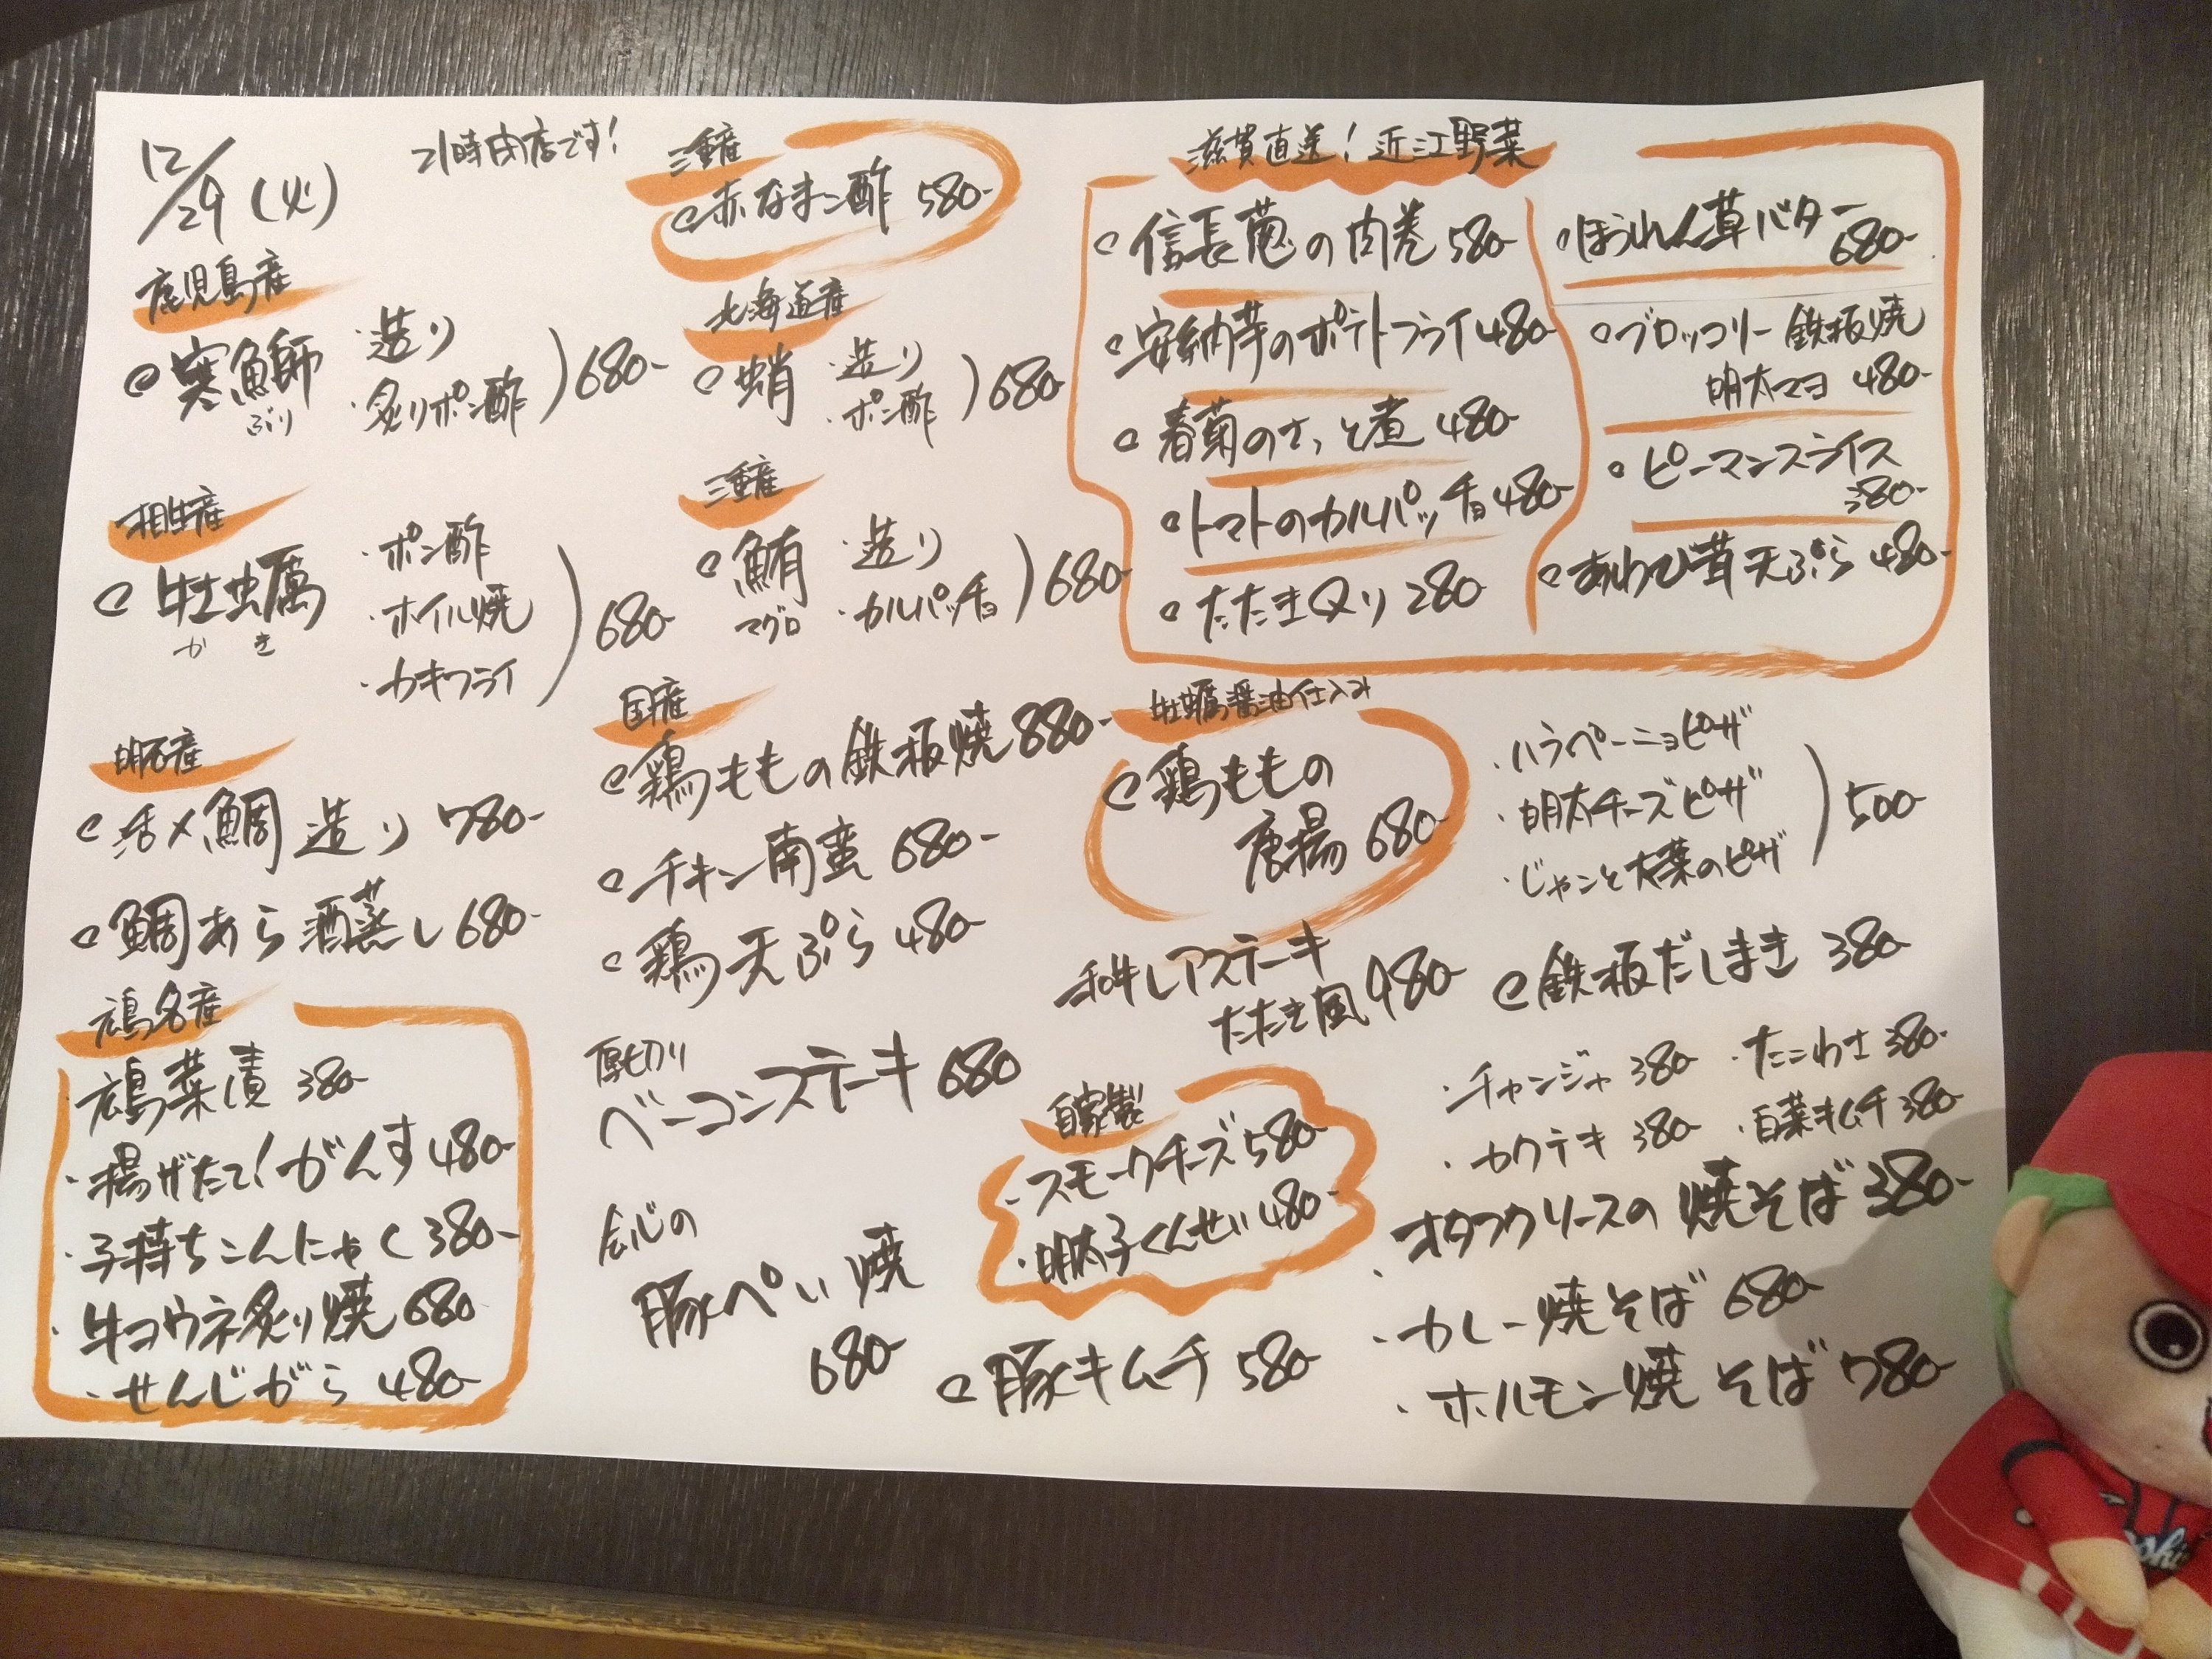 12/29(火)
21時閉店です!
鹿児島産
寒鰤 ・造り
ぶり ・炙りポン酢 ) 680-
相生産
牡蠣 ・ポン酢
かき ・ホイル焼 ) 680-
・カキフライ
明石産
活〆鯛 造り 780-
鯛あら酒蒸し 680-
広島名産
・広島菜漬 380-
・揚げたて!がんす 480-
・子持ちこんにゃく 380-
・牛コウネ炙り焼 680
・せんじがら 480-
三重産
赤なまこ酢 580-
北海道産
蛸 ・造り
・ポン酢 ) 680-
三重産
鮪 ・造り
マグロ ・カルパッチョ ) 680-
国産
鶏ももの鉄板焼 880-
チキン南蛮 680-
鶏天ぷら 480-
厚切り
ベーコンステーキ 680
広島の
豚ぺい焼
680-
滋賀直送!近江野菜
信長葱の肉巻 580-
安納芋のポテトフライ 480-
春菊のさっと煮 480-
トマトのカルパッチョ 480-
たたきQり 280-
ほうれん草バター
680-
ブロッコリー鉄板焼
明太マヨ 480-
ピーマンスライス
380-
あわび茸天ぷら 480-
牡蠣醤油仕込み
鶏ももの
唐揚 680-
和牛レアステーキ
たたき風 980-
自家製
・スモークチーズ 580-
・明太子くんせい 480-
豚キムチ 580-
・ハラペーニョピザ
・明太チーズピザ ) 500-
・じゃこと大葉のピザ
鉄板だしまき 380-
・チャンジャ 380- ・たこわさ 380-
・カクテキ 380- ・白菜キムチ 380-
・オタフクソースの焼そば 380-
・カレー焼そば 680-
・ホルモン焼そば 780-